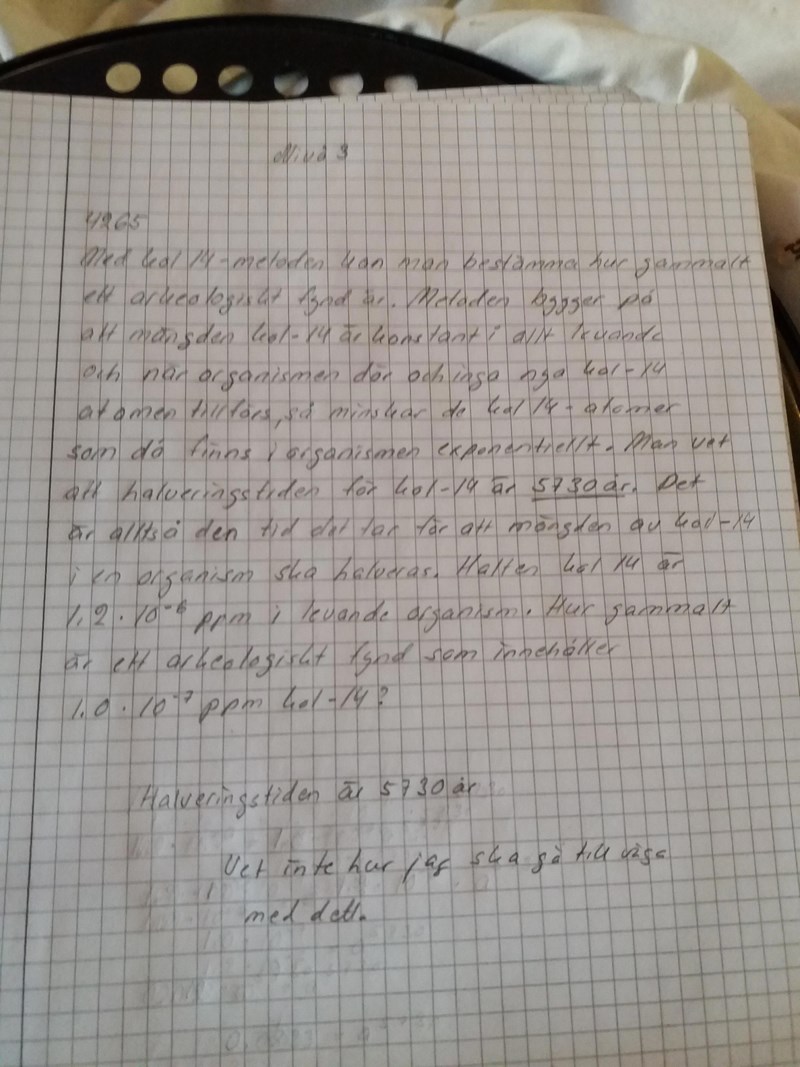 Nivå 3
4265
Med kol 14-metoden kan man bestämma hur gammalt
ett arkeologiskt fynd är. Metoden bygger på
att mängden kol-14 är konstant i allt levande
och när organismen dör och inga nya kol-14
atomen tillförs, så minskar de kol 14-atomer
som då finns i organismen exponentiellt. Man vet
att halveringstiden för kol-14 är 5730 år. Det
är alltså den tid det tar för att mängden av kol-14
i en organism ska halveras. Halten kol 14 är
1,2 · 10⁻⁶ ppm i levande organism. Hur gammalt
är ett arkeologiskt fynd som innehåller
1,0 · 10⁻⁷ ppm kol-14?
Halveringstiden är 5730 år
Vet inte hur jag ska gå till väga
med dett.